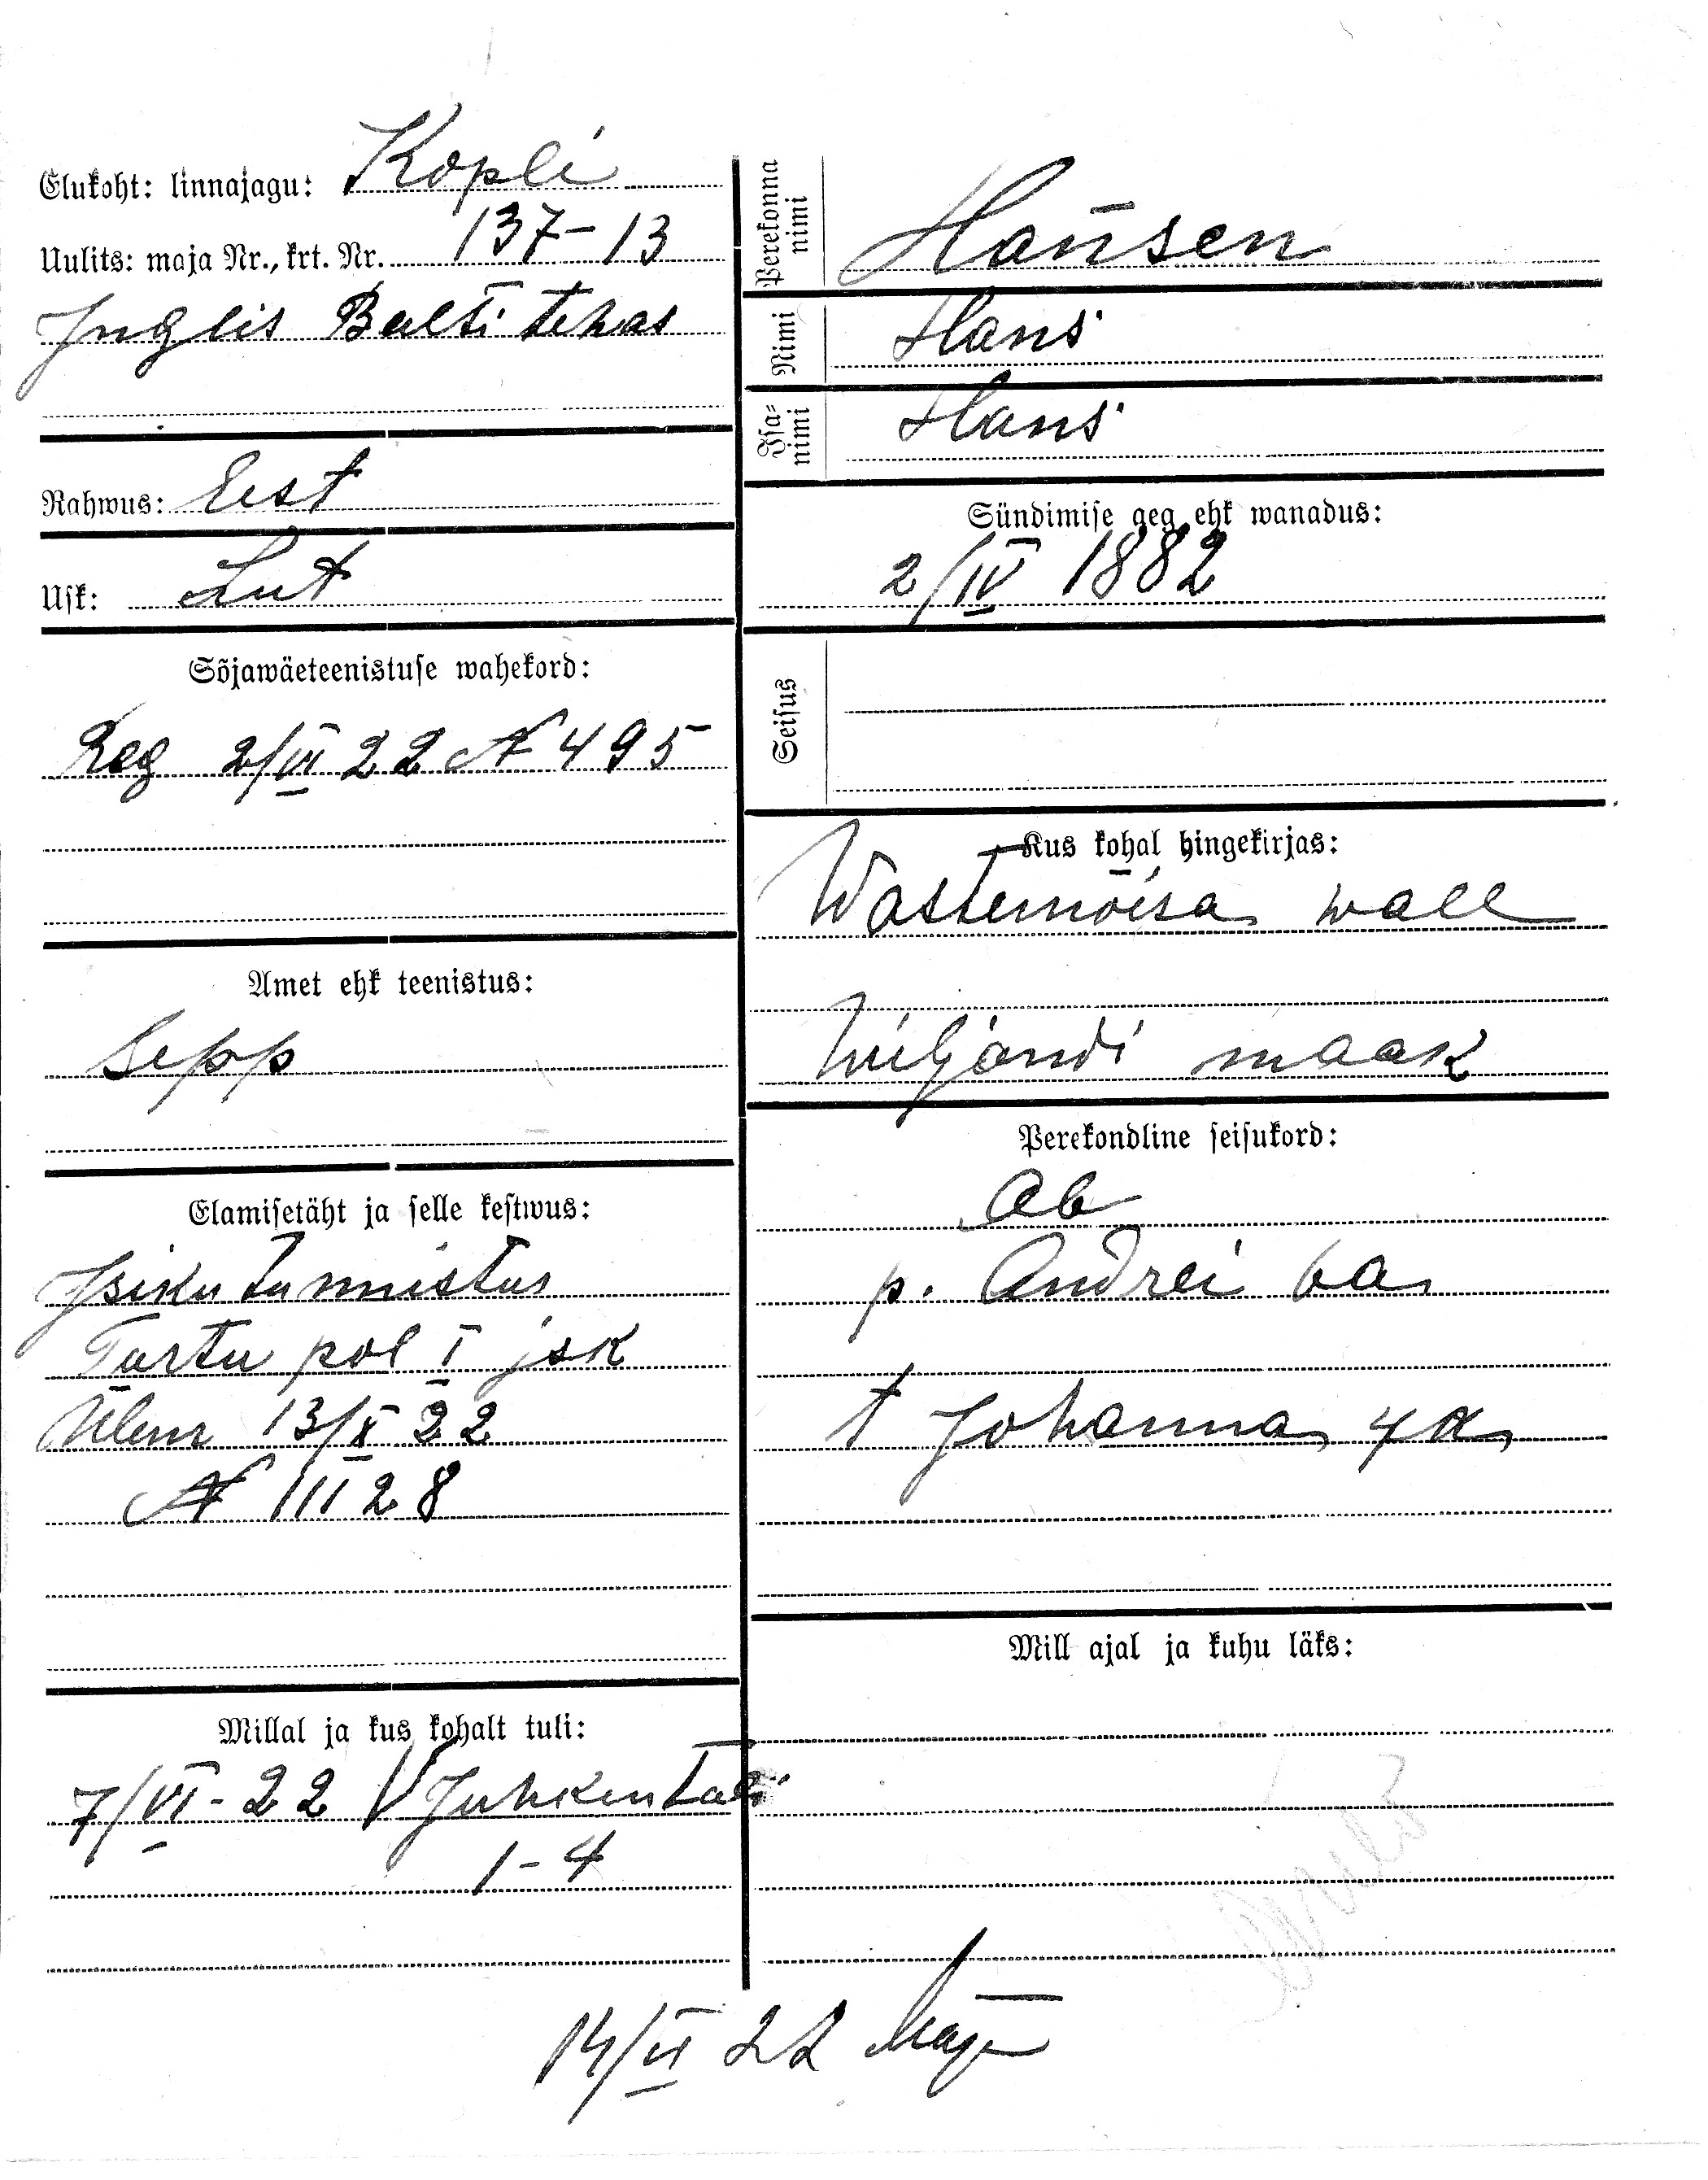 Elukoht: linnajagu: Kopli
Uulits: maja Nr., krt. Nr. 137-13
Inglis Balti tehas
Rahwus: Eest
Usk: Lut
Sõjawäeteenistuse wahekord:
Reg 2/VI 22 N 495
Amet ehk teenistus:
Sepp
Elamisetäht ja selle kestwus:
Isiku tunnistus
Tartu pol I jsk
Ülem 13/X 22
N 11128
Millal ja kus kohalt tuli:
7/VI-22 Juhkentali
1-4
Perekonna nimi Hansen
Nimi Hans
Isa-nimi Hans
Sündimise aeg ehk wanadus:
2/IV 1882
Seisus
Kus kohal hingekirjas:
Wastemõisa wall
Wiljandi maak
Perekondline seisukord:
Ab
p. Andrei 6 a
t Johanna 4 a
Mill ajal ja kuhu läks:
14/VI 22